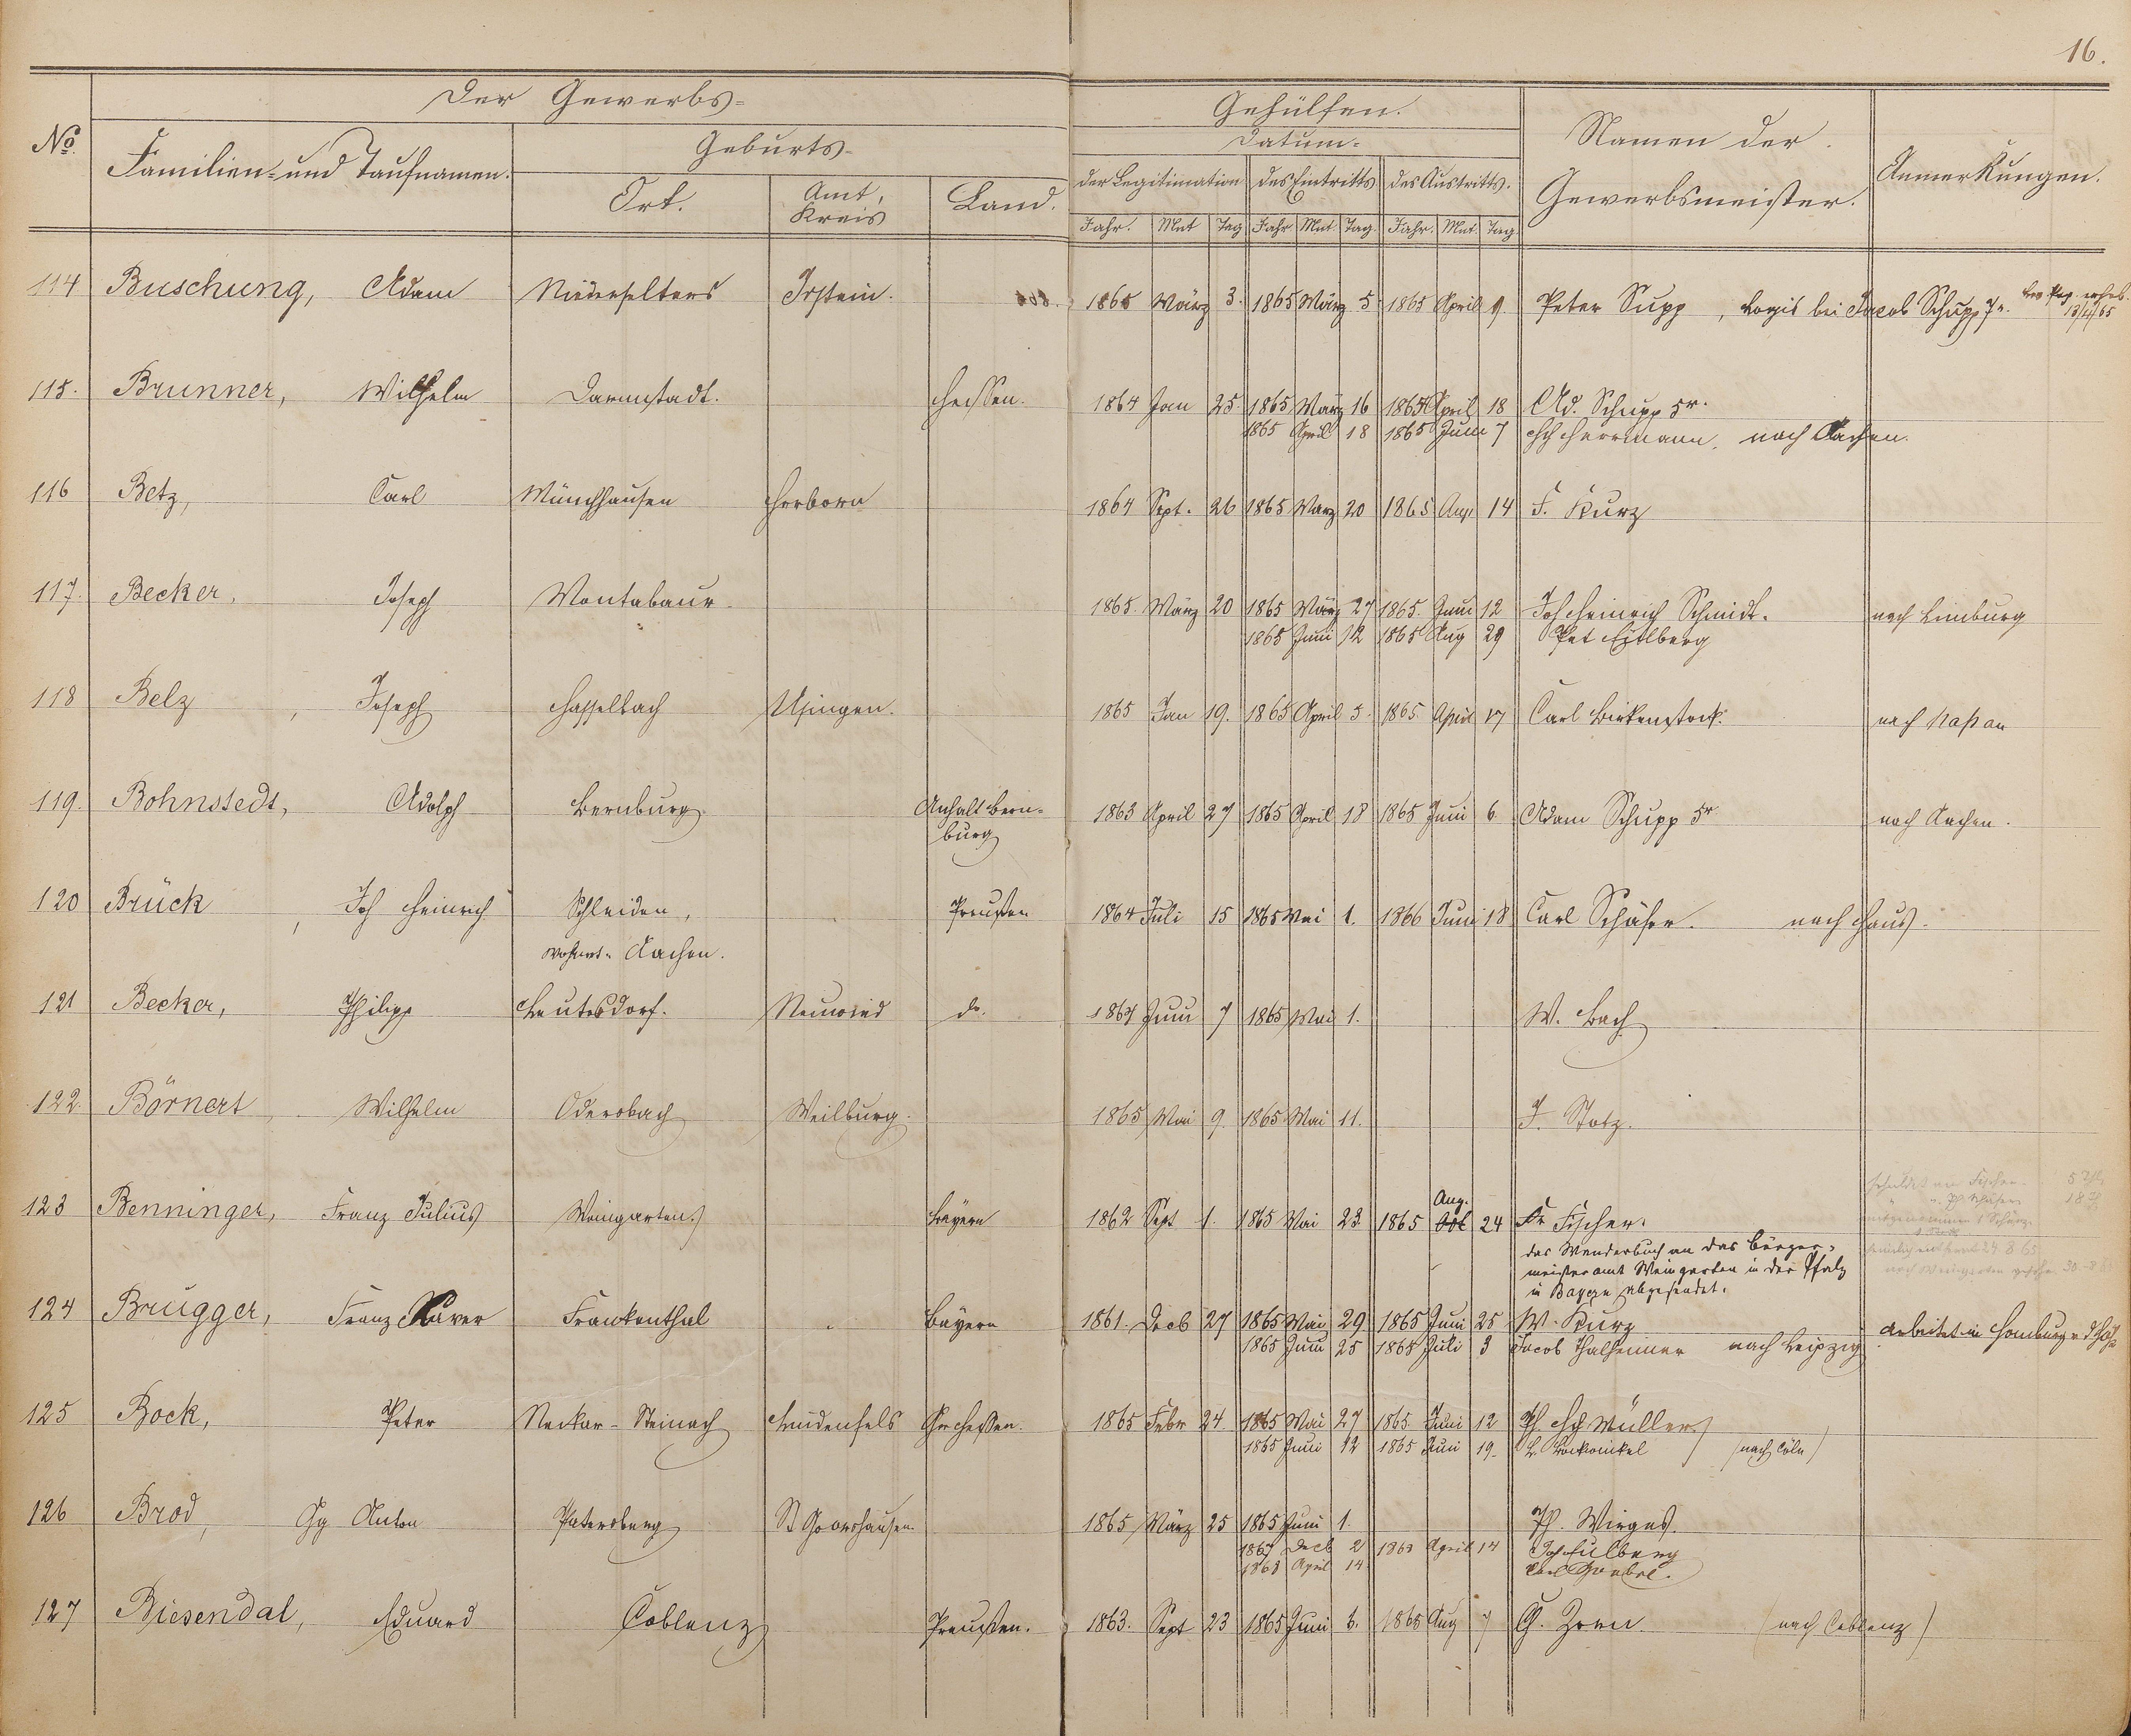 16.
Der Gewerbs-
Gehülfen.
No.
Familien- und Taufnamen.
Geburts-
Datum.
Namen der Gewerbsmeister.
Anmerkungen.
Ort.
Amt, Kreis
Land.
der Legitimation
des Eintritts
des Austritts.
Jahr. Mnt Tag Jahr Mnt Tag. Jahr. Mnt. Tag.
114 Buschung, Adam Niederselters Idstein. 1865 März 3. 1865 März 5 1865 April 9. Peter Supp, Logis bei Jacob Schupp 7r. 13/4/65
115. Brunner, Wilhelm Darmstadt. Hessen. 1864 Jan 25 1865 März 16 1865 April 18 Ad. Schupp 5r.
1865 April 18 1865 Juni 7 Hch Herrmann, nach Aachen.
116 Betz, Carl Münchhausen Herborn 1864 Sept. 26 1865 März 20 1865 Aug 14 F. Kurz
117. Becker, Joseph Montabaur 1865 März 20 1865 März 27 1865 Juni 12 Joh Heinrich Schmidt. nach Limburg
1865 Juni 12 1865 Aug 29 Pet Eulberg
118 Belz, Joseph Hasselbach Usingen. 1865 Jan 19. 1865 April 5. 1865 April 17 Carl Birkenstock. nach Naßau
119. Bohnstedt, Adolph Bernburg. Anhalt Bern- 1863 April 27 1865 April 18 1865 Juni 6 Adam Schupp 5r nach Aachen.
burg
120 Brück, Joh Heinrich Schleiden, Preußen 1864 Juli 15 1865 Mai 1. 1866 Juni 18 Carl Schäfer. nach Haus.
Aachen.
121 Becker, Philipp Leutesdorf. Neuwied do. 1864 Juni 7 1865 Mai 1. W. Bach
122. Börnert, Wilhelm Odersbach Weilburg. 1865 Mai 9. 1865 Mai 11. J. Stotz.
123 Benninger, Franz Julius Weingarten. Bayern 1862 Sept 1. 1865 Mai 23 1865 Aug. 24 Fr Fischer.
das Wanderbuch an das Bürger-
meisteramt Weingarten in der Pfalz
in Bayern abgesendet.
124 Brugger, Franz Xaver Frankenthal Bayern 1861. Decb 27 1865 Mai 29 1865 Juni 25 W. Kurz
1865 Juni 25 1865 Juli 3 Jacob Thalheimer nach Leipzig arbeitet in Homburg v d Höhe
125 Bock, Peter Neckar-Steinach Lindenfels Gr Hessen. 1865 Febr 24. 1865 Mai 27 1865 Juni 12 Ph Hch Müller
1865 Juni 12 1865 Juni 19. (nach Cöln)
126 Brod, Gg Anton Patersberg St Goarshausen. 1865 März 25 1865 Juni 1. Ph. Wirges.
1867 Decb 2 1868 April 14 Joh Eulberg
1868 April 14 Carl Goebel.
127 Biesendal, Eduard Coblenz Preußen. 1863. Sept 23 1865 Juni 6. 1865 Aug 7 G. Zorn (nach Coblenz)